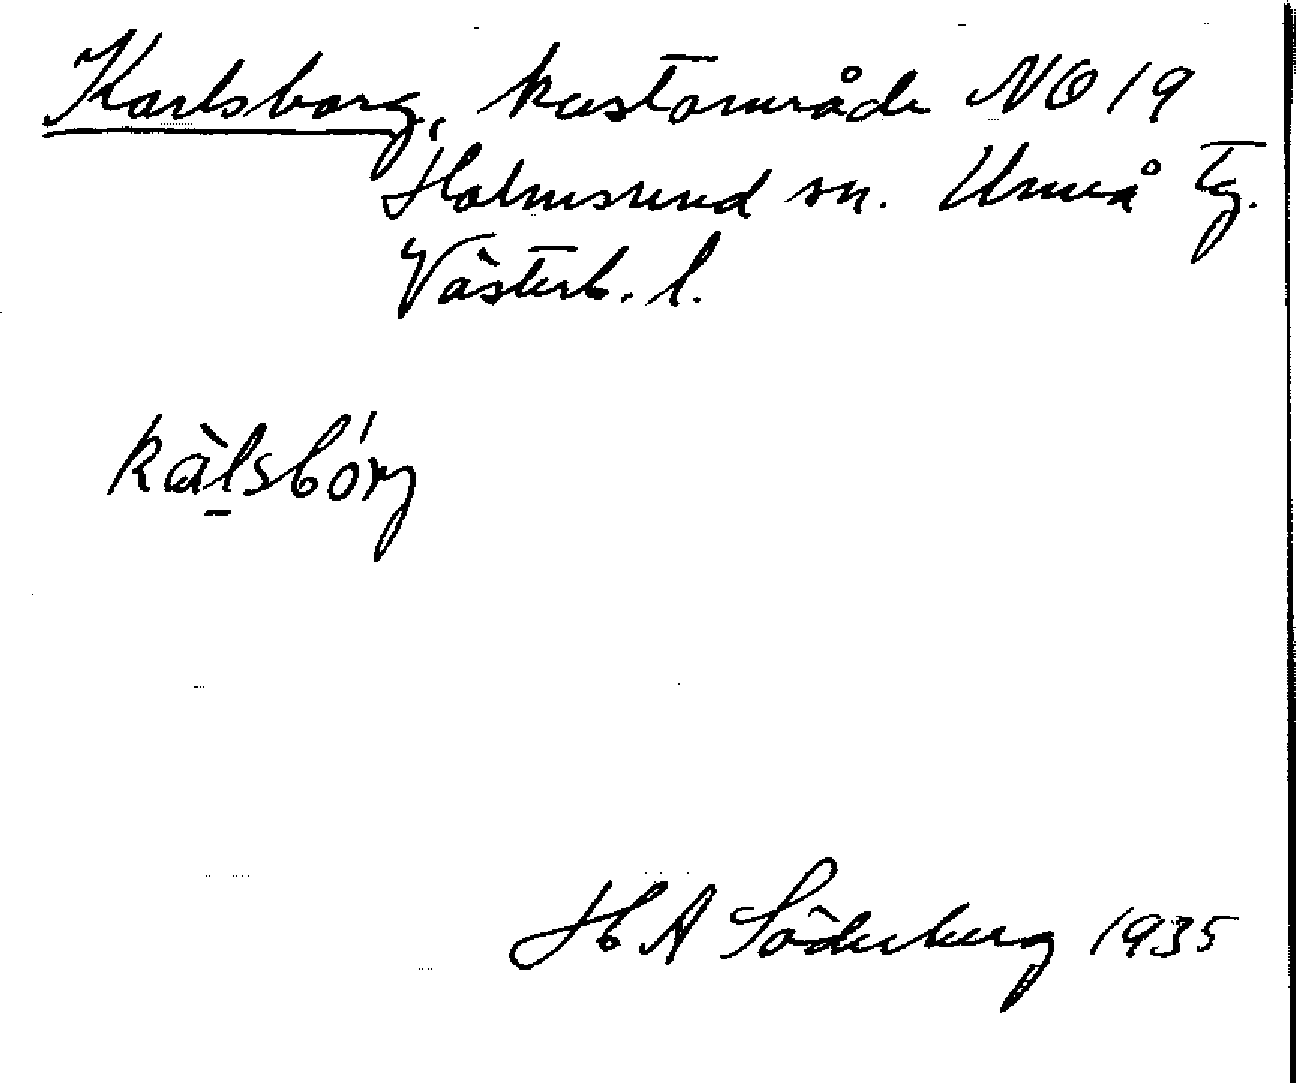 Karlsborg, kustområde NO 19
Holmsund sn. Umeå tg.
Västerb. l.
kàlsbórg
H A Söderberg 1935